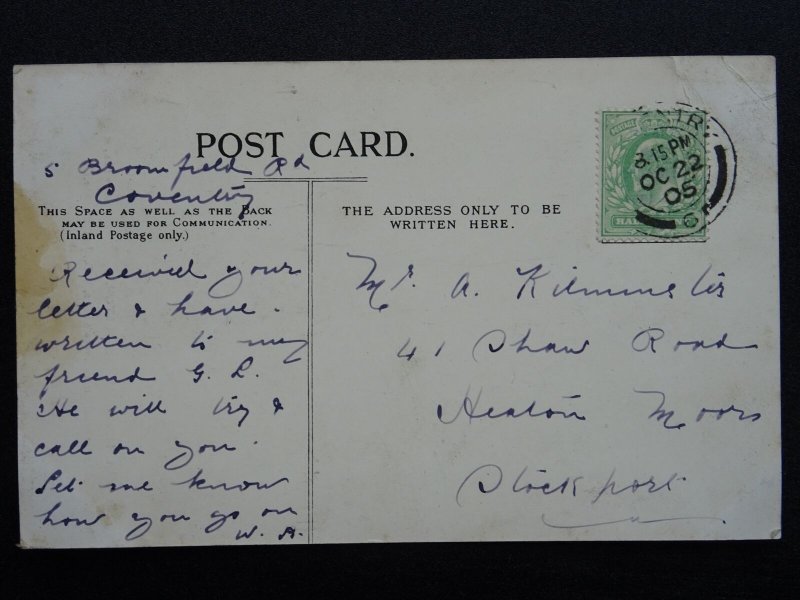 POST CARD.
5 Broomfield Rd
Coventry
THIS SPACE AS WELL AS THE BACK
MAY BE USED FOR COMMUNICATION.
(Inland Postage only.)
Received your
letter & have
written to my
friend G. L.
He will try &
call on you.
Let me know
how you go on
W. A.
THE ADDRESS ONLY TO BE
WRITTEN HERE.
Mr. A. Kilminster
41 Shaw Road
Heaton Moor
Stockport
8.15 PM
OC 22
05